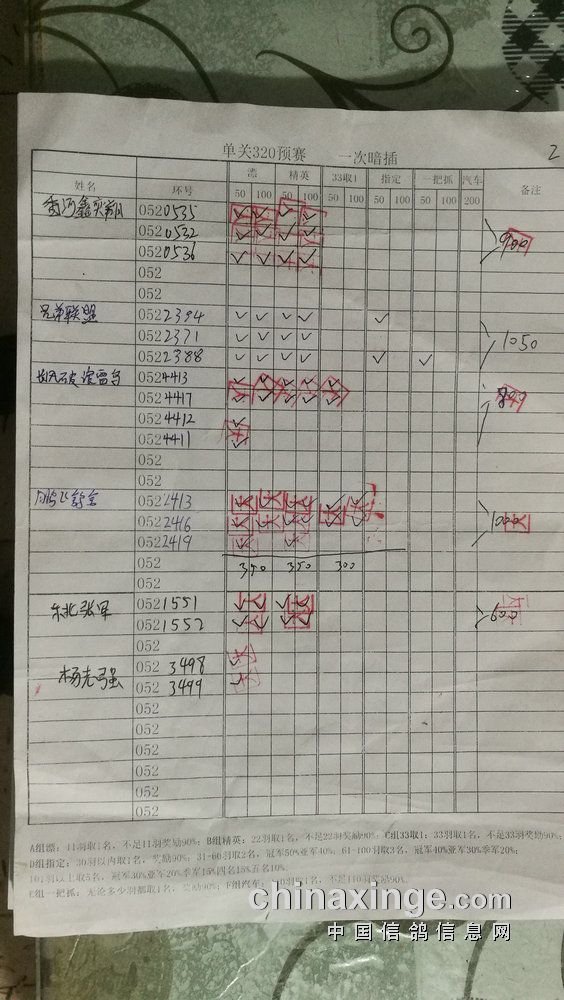 单关320预赛 一次暗插 2
姓名 环号 票 精英 33取1 指定 一把抓 汽车 备注
50 100 50 100 50 100 50 100 50 100 200
0520535
0520532
0520536 900
052
052
兄弟联盟 0522394
0522371
0522388 1050
0524413
0524417
0524412
0524411
052
052
0522413
0522416
0522419
052 350 350 300
052
东北张军 0521551
0521552 600
052
杨志强 052 3498
052 3499
052
052
052
052
052
052
A组票：11羽取1名，不足11羽奖励90%；B组精英：22羽取1名，不足22羽奖励90%；C组33取1：33羽取1名，不足33羽奖励90%；
D组指定：30羽以内取1名，奖励90%；31-60羽取2名，冠军50%亚军40%；61-100羽取3名，冠军40%亚军30%季军20%；
101羽以上取5名，冠军30%亚军20%季军15%四名15%五名10%．
E组一把抓：无论多少羽都取1名，奖励90%；F组汽车：110羽取1名，不足110羽奖励90%．
chinaxinge.com
中国信鸽信息网